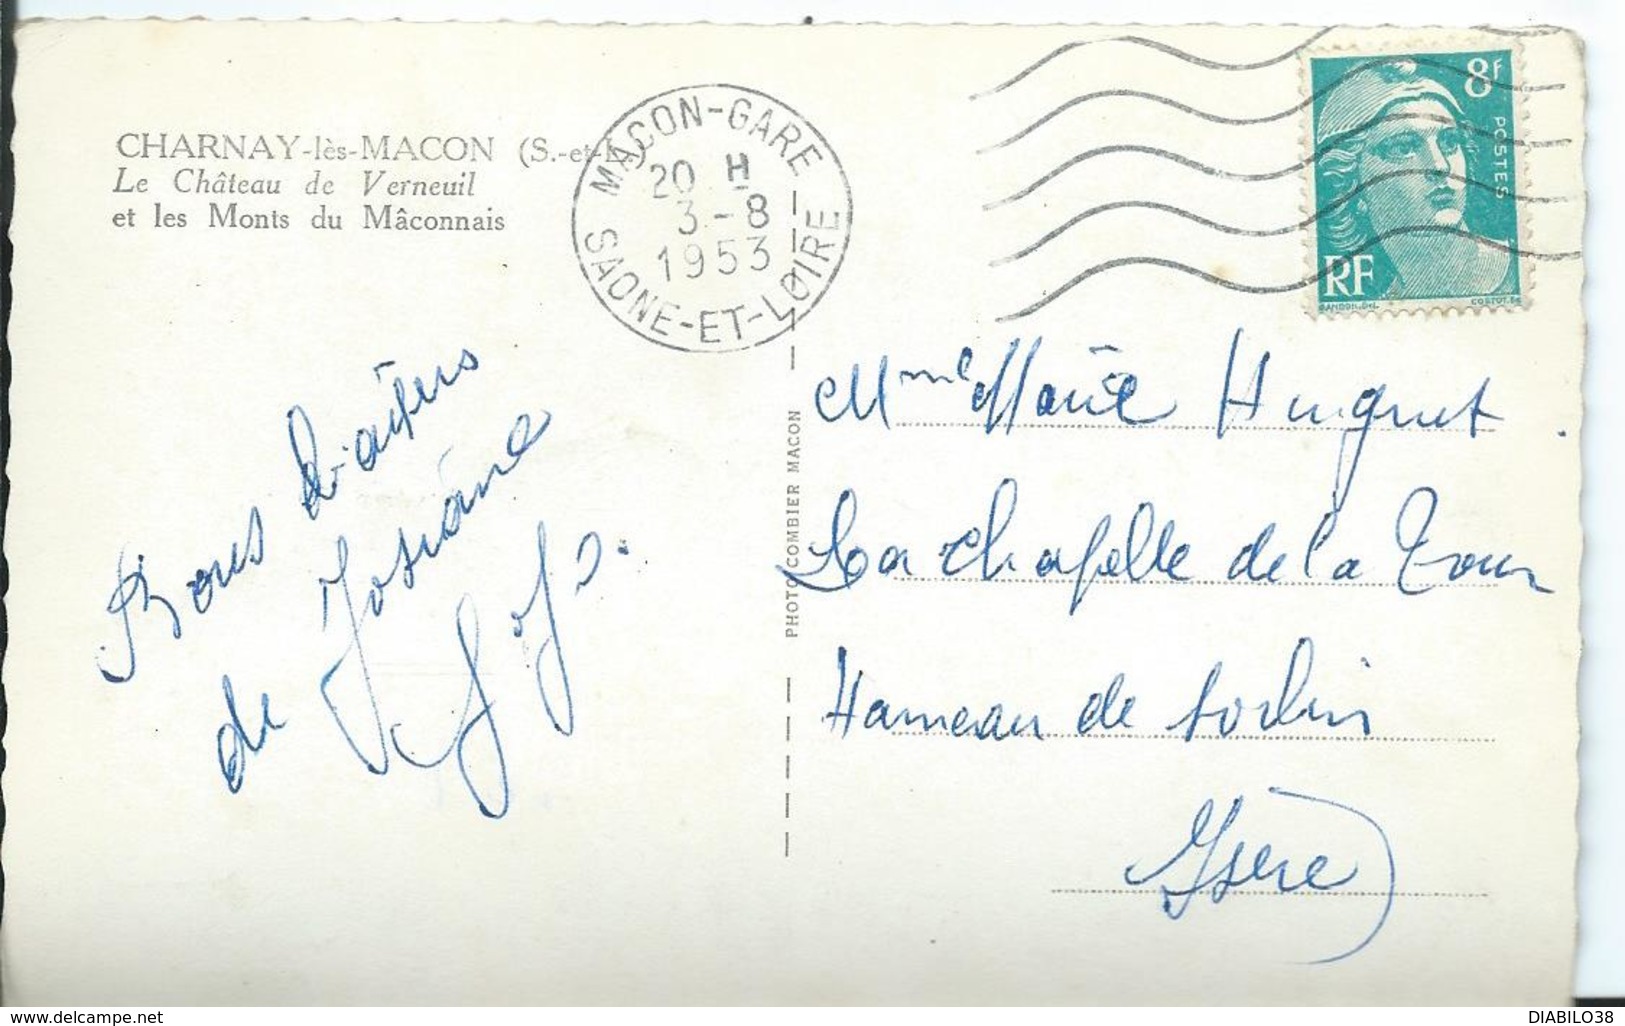 CHARNAY-lès-MACON (S.-et-L.)
Le Château de Verneuil
et les Monts du Mâconnais
MACON-GARE
20 H
3-8
1953
SAONE-ET-LOIRE
8F
POSTES
RF
GANDON.DEL
Bons baisers
de Josiane
PHOTO COMBIER MACON
Mme Marie Huguet
La Chapelle de la Tour
Hameau de
Isère
www.delcampe.net
DIABILO38